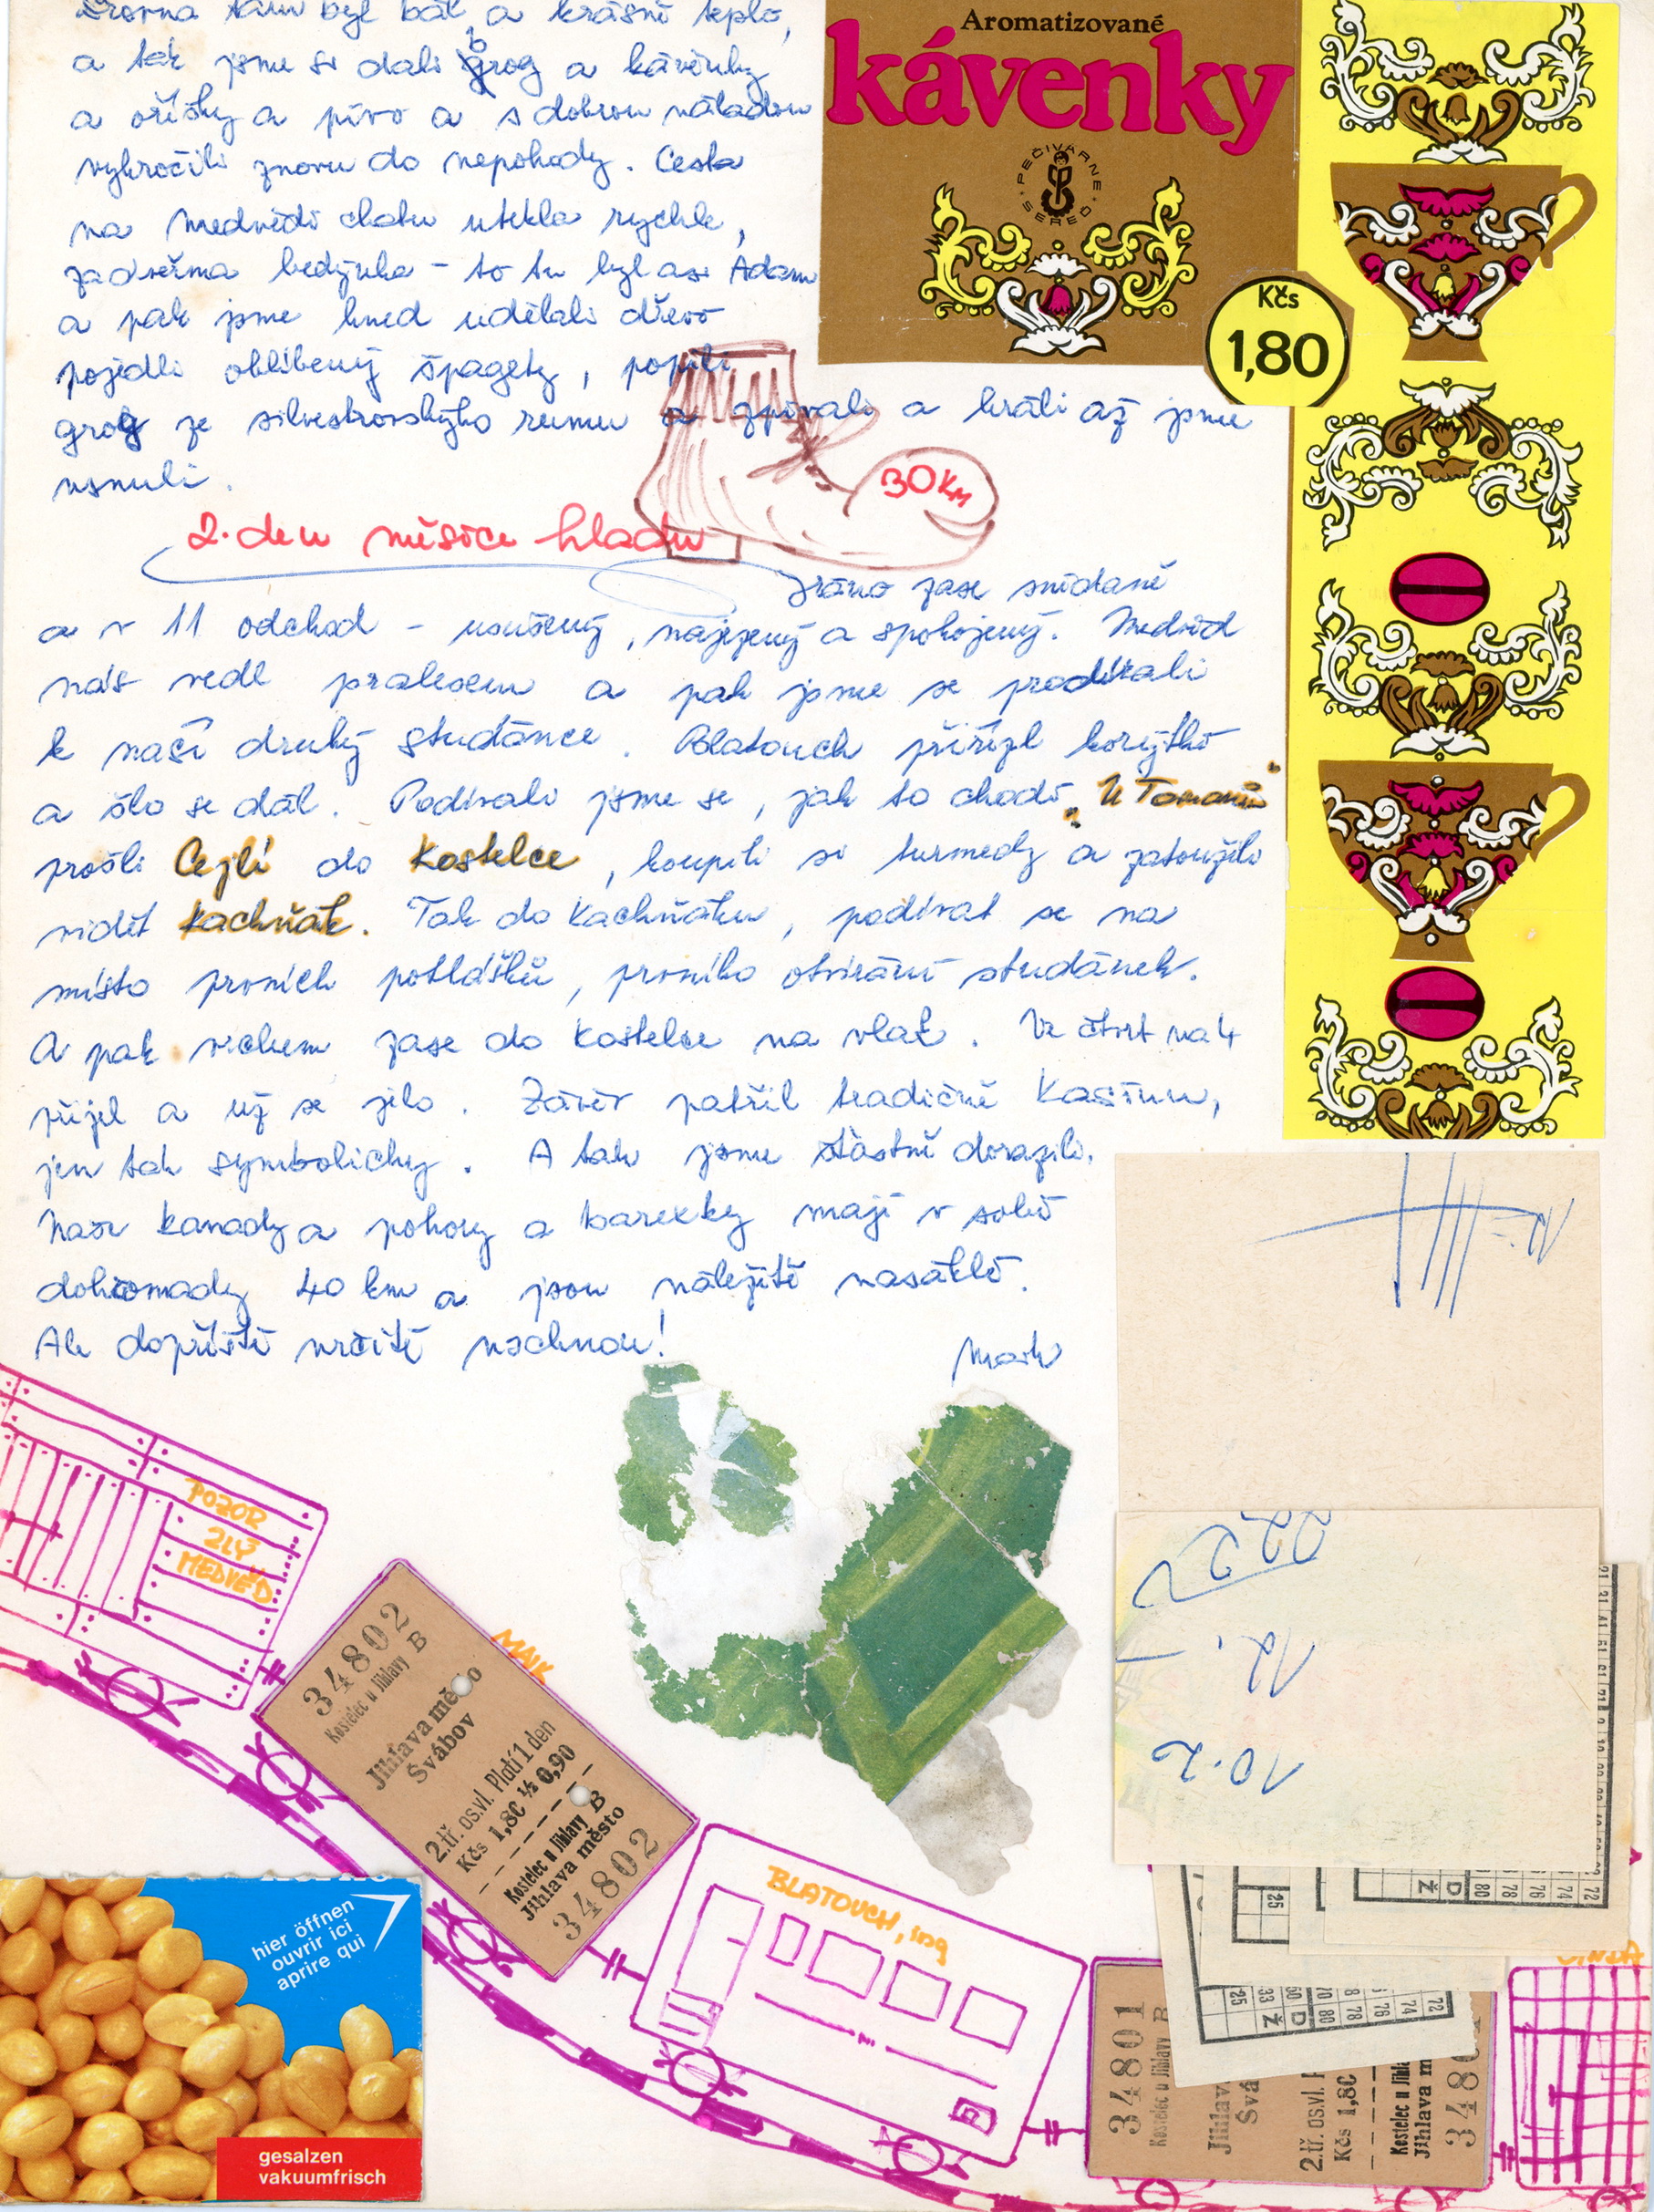 Zrovna tam byl bál a krásně teplo,
a tak jsme si dali grog a kávěnky
a oříšky a pívo a s dobrou náladou
vykročili znovu do nepohody. Cesta
na medvědí chatu utekla rychle,
za dveřma bedýnka - to tu byl asi Adam
a pak jsme hned udělali dřevo
pojedli oblíbený špagety, popili
grog ze silvestrovskýho rumu a zpívali a hráli až jsme
usnuli.
30 KM
2. den měsíce hladu
Ráno zase snídaně
a v 11 odchod - usušený, najezený a spokojený. Medvěd
nás vedl pralesem a pak jsme se prodírali
k naší druhý studánce. Blatouch přiřízl korýtko
a šlo se dál. Podívali jsme se, jak to chodí „U Tomanů"
prošli Cejlí do Kostelce, koupili si turmedy a zatoužili
vidět Kachňák. Tak do Kachňáku, podívat se na
místo prvních potlášků, prvního otvírání studánek.
A pak vrchem zase do Kostelce na vlak. Ve čtvrt na 4
přijel a už se jelo. Závěr patřil tradičně Kasínu,
jen tak symbolicky. A tak jsme šťastně dorazili.
Naše kanady a pohory a barexky mají v sobě
dohromady 40 km a jsou náležitě nasáklé.
Ale dopříště určitě uschnou!
Maik
Aromatizované
kávenky
PEČIVÁRNE
SEREĎ
Kčs
1,80
POZOR
ZLÝ
MEDVĚD
MAIK
34802
Kostelec u Jihlavy B
Jihlava město
Švábov
2.tř. os.vl. Platí 1 den
Kčs 1,80 ½ 0,90
Kostelec u Jihlavy B
Jihlava město
34802
BLATOUCH, ing
34801
Kostelec u Jihlavy B
2.tř. os.vl.
Kčs 1,80
Kostelec u Jihla
Jihlava m
12.-
22,2
12.-
10.20
25
Ž
D
80
78
76
74
72
25
33
Ž
D
80
78
76
74
72
hier öffnen
ouvrir ici
aprire qui
gesalzen
vakuumfrisch